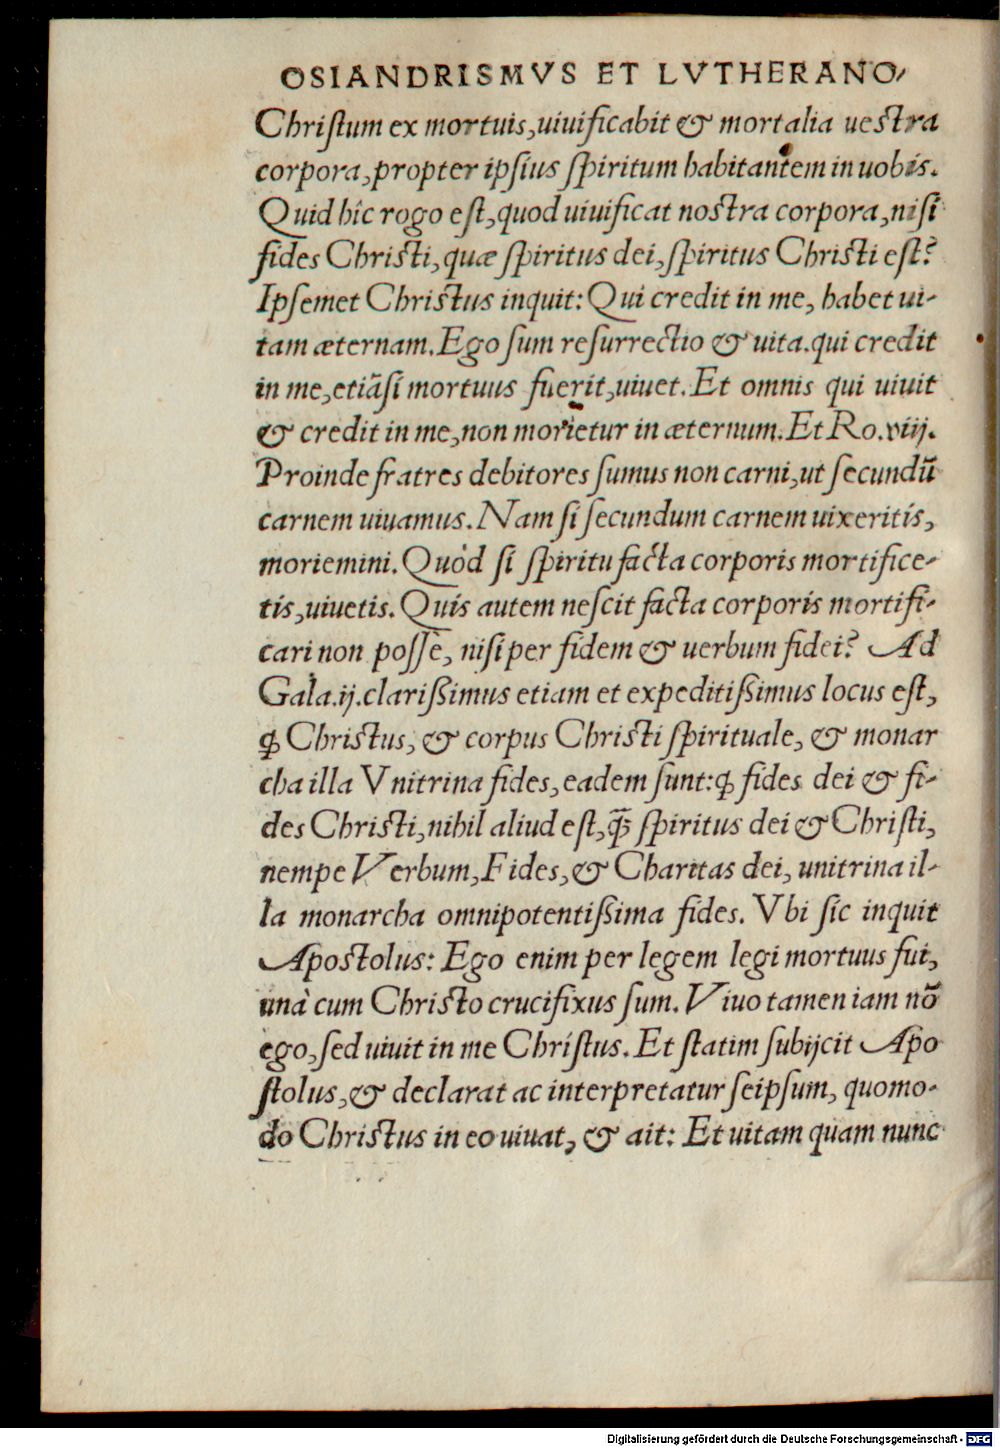 OSIANDRISMVS ET LVTHERANO-
Chriſtum ex mortuis, uiuificabit & mortalia ueſtra
corpora, propter ipſius ſpiritum habitantem in uobis.
Quid hîc rogo eſt, quod uiuificat noſtra corpora, niſi
fides Chriſti, quæ ſpiritus dei, ſpiritus Chriſti eſt?
Ipſemet Chriſtus inquit: Qui credit in me, habet ui-
tam æternam. Ego ſum reſurrectio & uita. qui credit
in me, etiãſi mortuus fuerit, uiuet. Et omnis qui uiuit
& credit in me, non morietur in æternum. Et Ro. viij.
Proinde fratres debitores ſumus non carni, ut ſecundũ
carnem uiuamus. Nam ſi ſecundum carnem uixeritis,
moriemini. Quòd ſi ſpiritu facta corporis mortifice-
tis, uiuetis. Quis autem neſcit facta corporis mortifi-
cari non poſſe, niſi per fidem & uerbum fidei? Ad
Gala. ij. clarißimus etiam et expeditißimus locus eſt,
ꝙ Chriſtus, & corpus Chriſti ſpirituale, & monar
cha illa Vnitrina fides, eadem ſunt: ꝙ fides dei & fi-
des Chriſti, nihil aliud eſt, ꝙ̃ ſpiritus dei & Chriſti,
nempe Verbum, Fides, & Charitas dei, unitrina il-
la monarcha omnipotentißima fides. Vbi ſic inquit
Apoſtolus: Ego enim per legem legi mortuus fui,
unà cum Chriſto crucifixus ſum. Viuo tamen iam nõ
ego, ſed uiuit in me Chriſtus. Et ſtatim ſubijcit Apo
ſtolus, & declarat ac interpretatur ſeipſum, quomo-
do Chriſtus in eo uiuat, & ait: Et uitam quam nunc
Digitalisierung gefördert durch die Deutsche Forschungsgemeinschaft - DFG